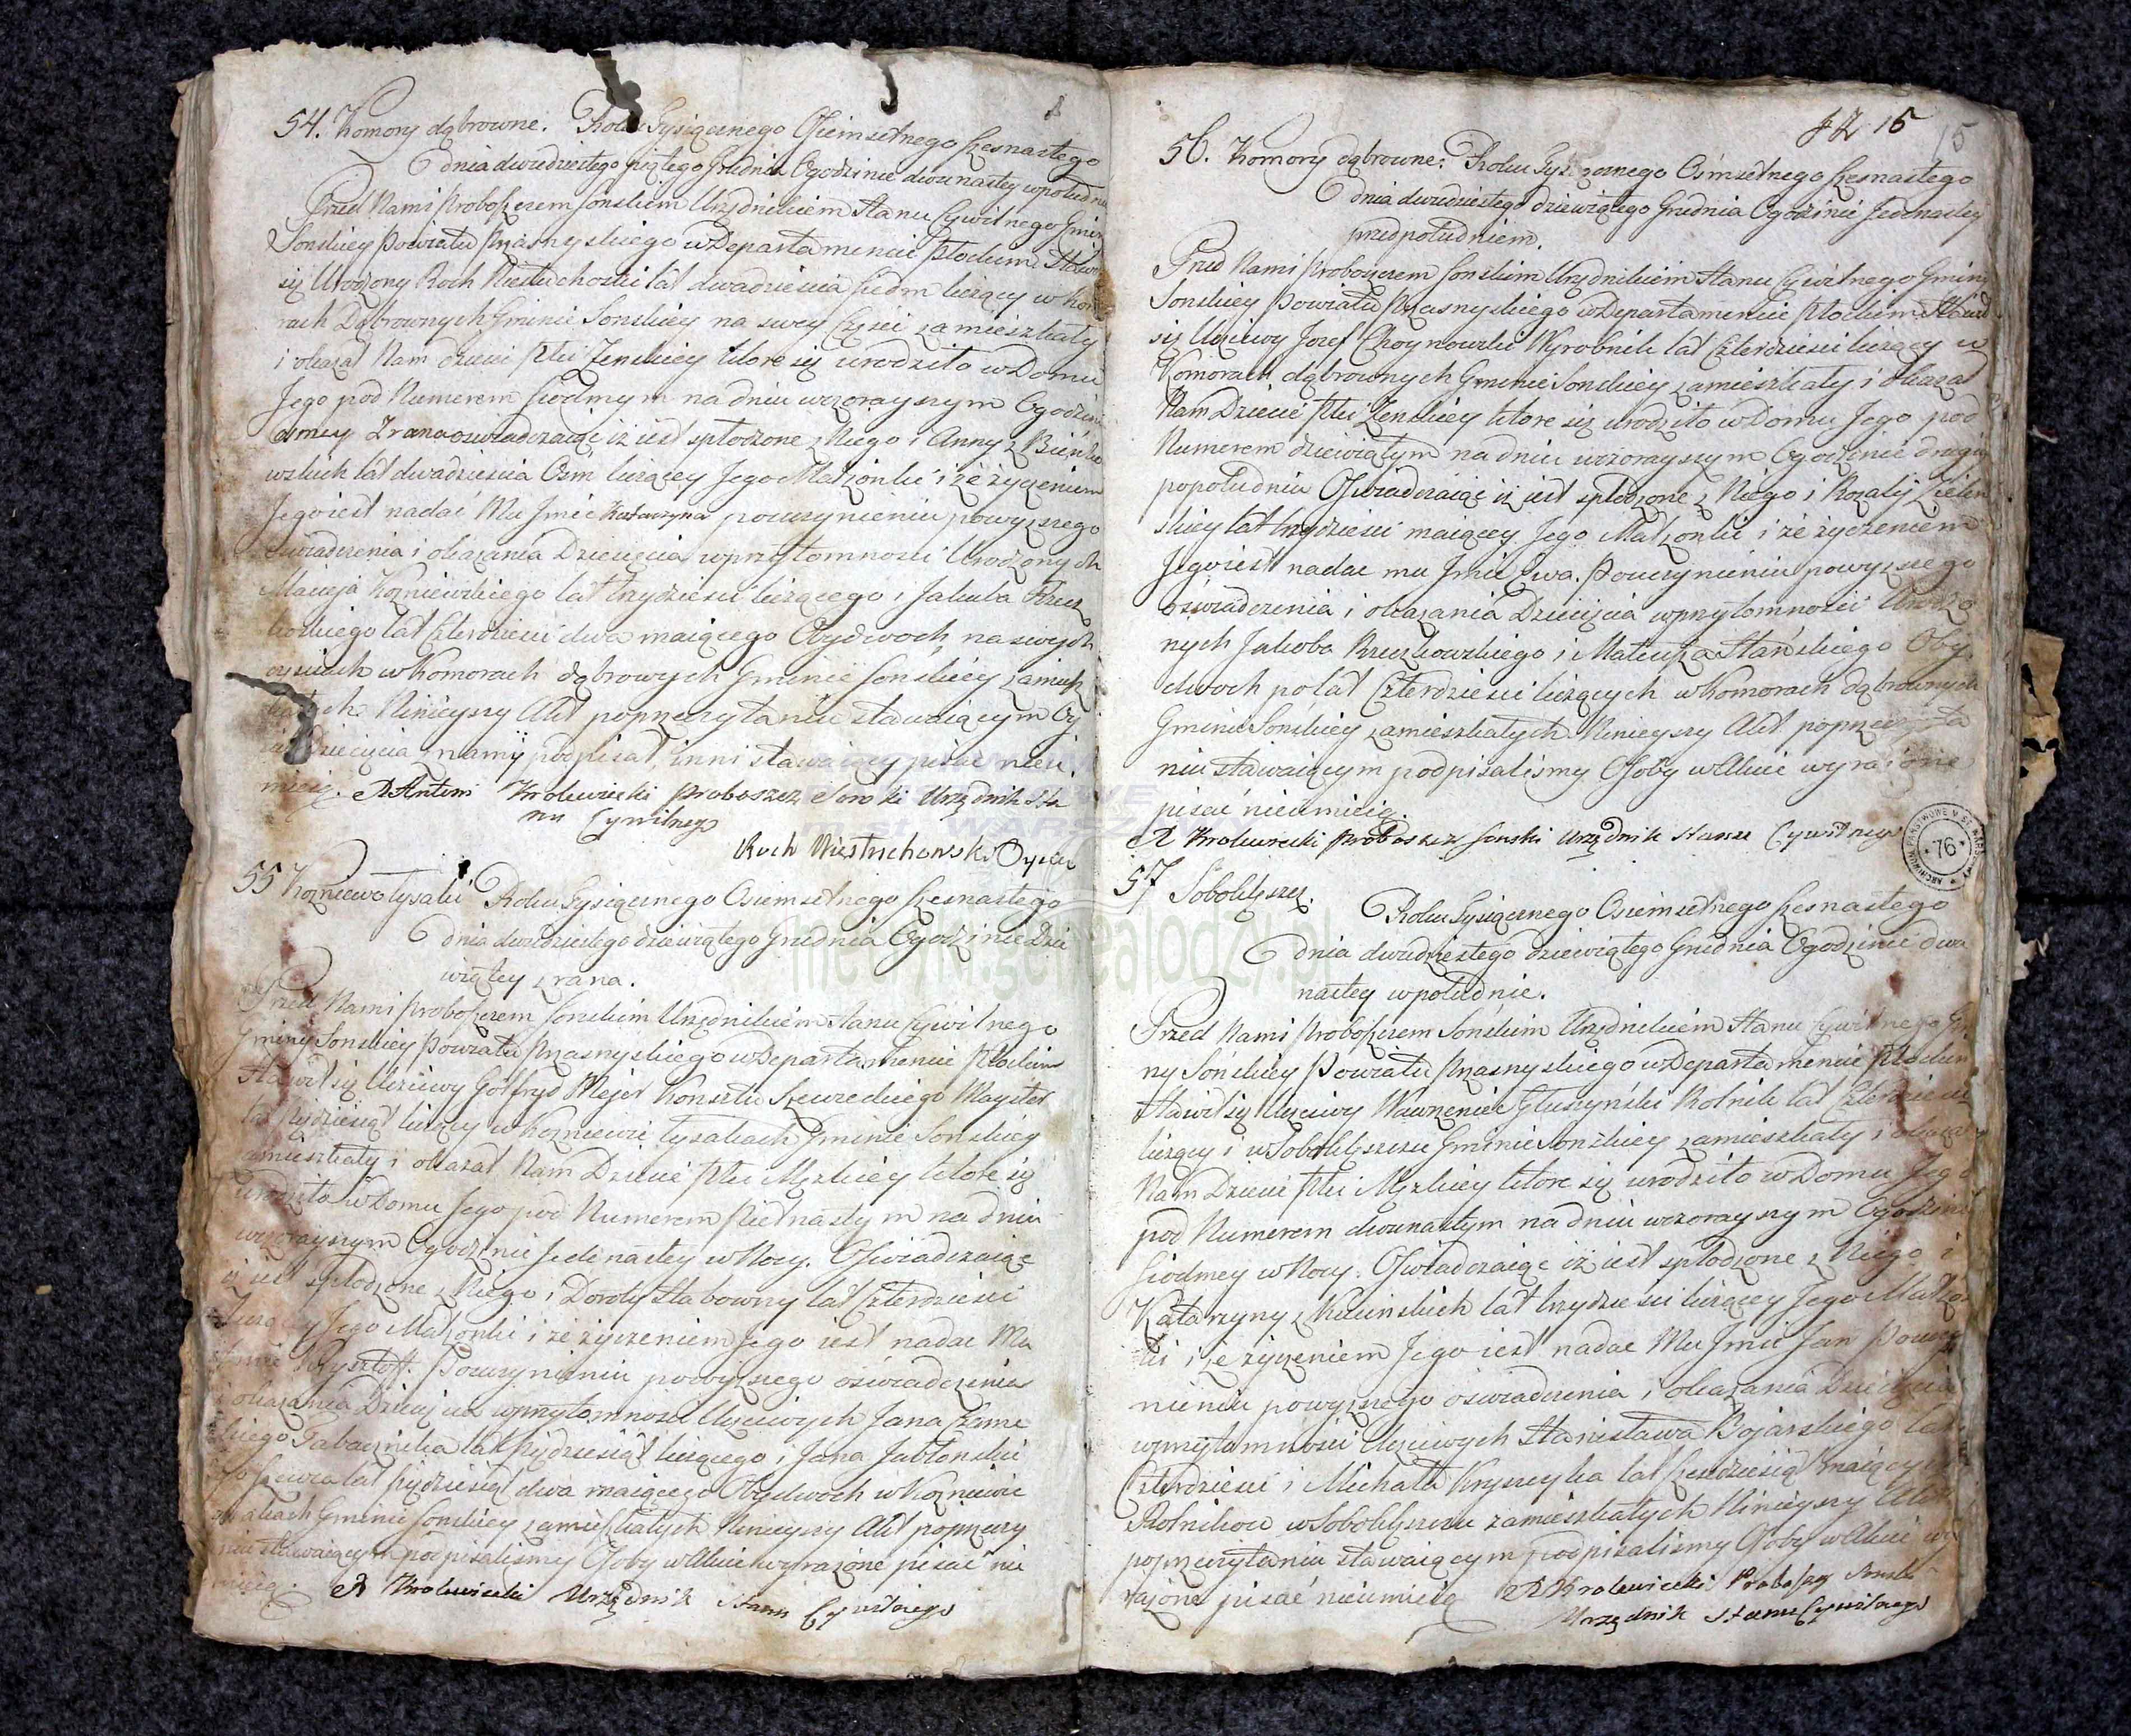 54. Komory dąbrowne. Roku Tysiącznego Osiemsetnego szesnastego
dnia dwudziestego piątego Grudnia O godzinie dwunastey w południe
Przed Nami Proboszczem Sonskim Urzędnikiem Stanu Cywilnego Gminy
Sonskiey Powiatu Przasnyskiego w Departamencie Płockim Stawił
się Urodzony Roch Niestuchoski lat dwadzieścia siedm liczący w Komo
rach Dąbrownych Gminie Sonskiey na swey Części zamieszkały
i okazał Nam dziecie płci Zenskiey ktore się urodziło w Domu
Jego pod Numerem siodmym na dniu wczorayszym O godzinie
osmey Zrana oswiadczaiąc iż iest spłodzone z Niego i Anny z Bieńko
wskich lat dwadzieścia Osm liczącey Jego Małżonki i że życzeniem
Jego iest nadać Mu Jmie Katarzyna po uczynieniu powyższego
oswiadczenia i okazania Dziecięcia w przytomnosci Urodzonych
Macieja Kozniewskiego lat trzydzieści liczącego i Jakuba Brzez
koskiego lat Czterdzieści dwa maiącego Obydwoch na swych
częściach w Komorach dąbrowych Gminie Sonskiey zamiesz
kałych. Ninieyszy Akt po przeczytaniu stawaiącym Oy
ciec Dziecięcia z namÿ podpisał, inni stawaiący pisać nieu
mieią. X Antoni Krolewiecki Proboszcz Sonski Urzędnik Sta
nu Cywilnego
Roch Niestuchowski Oyciec
55 Kozniewo łysaki Roku Tysiącznego Osiemsetnego szesnastego
dnia dwudziestego dziewiątego Grudnia O godzinie Dzie
wiątey z rana.
Przed Nami Proboszczem Sonskim Urzędnikiem Stanu Cywilnego
Gminy Sonskiey Powiatu Przasnyskiego w Departamencie Płockim
Stawił się Uczciwy Gotfryd Mejer Konsztu Szewieckiego Mayster
lat pięдziesiąt liczący w Kozniewie łysakach Gminie Sonskiey
zamieszkały i okazał Nam Dziecie płci Męskiey ktore się
urodziło w Domu Jego pod Numerem piętnastym na dniu
wczorayszym O godzinie Jedenastey w Nocy. Oswiadczaiąc
iż iest spłodzone z Niego i Doroty lat Czterdzieści
liczącey Jego Małżonki i że życzeniem Jego iest nadać Mu
Jmie Krysztoff. Po uczynieniu powyższego oświadczenia
i okazania Dziecięcia w przytomnosci Uczciwych Jana
Tabacznika lat pięćdziesiąt liczącego i Jana Jabłonskie
go Szewca lat pięćdziesiąt dwa maiącego Obydwoch w Kozniewie
łysakach Gminie Sonskiey zamieszkałych Ninieyszy Akt po przeczy
taniu stawaiącym podpisalismy Osoby w Akcie wyrażone pisać nie
umieią. X Krolewiecki Urzędnik Stanu Cywilnego
42 15 15
56. Komory dąbrowne: Roku Tysiącznego Osmsetnego szesnastego
dnia dwudziestego dziewiątego Grudnia O godzinie Jedenastey
przed południem.
Przed Nami Proboszczem Sonskim Urzędnikiem Stanu Cywilnego Gminy
Sonskiey Powiatu Przasnyskiego w Departamencie Płockim Stawił
się Uczciwy Jozef Choynowski Wyrobnik lat Czterdzieści liczący w
Komorach dąbrownych Gminie Sonskiey zamieszkały i okazał
Nam Dziecie Płci Zenskiey ktore się urodziło w Domu Jego pod
Numerem dziewiątym na dniu wczorayszym O godzinie drugiey
po południu Oswiadczaiąc iż iest spłodzone z Niego i Rozalij Zielin
skiey lat trzydzieści maiącey Jego Małżonki i że życzeniem
Jego iest nadac mu Jmie Ewa. Po uczynieniu powyższego
oświadczenia i okazania Dziecięcia w przytomności Urodzo
nych Jakoba Brzezkowskiego i Mateusza Stańskiego Oby
dwoch po lat Czterdzieści liczących w Komorach dąbrownych
Gminie Sonskiey zamieszkałych. Ninieyszy Akt po przeczyta
niu stawaiącym podpisalismy Osoby w Akcie wyrażone
pisać nieumieią.
X Krolewiecki Proboszcz Sonski Urzędnik Stanu Cywilnego
ARCHIWUM PAŃSTWOWE M. ST. WARSZAWY 76
57 Soboklęszcz.
Roku Tysiącznego Osiemsetnego szesnastego
dnia dwudziestego dziewiątego Grudnia O godzinie dwu
nastey w południe.
Przed Nami Proboszczem Sońskim Urzędnikiem Stanu Cywilnego Gmi
ny Sońskiey Powiatu Przasnyskiego w Departamencie Płockim
Stawił się Uczciwy Wawrzeniec Głuszyński Rolnik lat Czterdzieści
liczący i w Soboklęszczu Gminie Sonskiey zamieszkały i okazał
Nam Dziecie płci Męskiey ktore się urodziło w Domu Jego
pod Numerem dwunastym na dniu wczorayszym O godzinie
siodmey w Nocy. Oswiadczaiąc iż iest spłodzone z Niego i
Katarzyny z lat trzydzieści liczącey Jego Małżon
ki i że życzeniem Jego iest nadac Mu Jmie Jan Po uczy
nieniu powyższego oswiadczenia i okazania Dziecięcia
w przytomności Uczciwych Stanisława Bojarskiego lat
Czterdzieści i Michała Kryszczyka lat sześdziesiąt maiących
Rolnikow w Soboklęszczu zamieszkałych Ninieyszy Akt
po przeczytaniu stawaiącym podpisalismy Osoby w Akcie wy
rażone pisać nieumieią X Krolewiecki Proboszcz Sonski
Urzędnik Stanu Cywilnego
metryki.genealodzy.pl